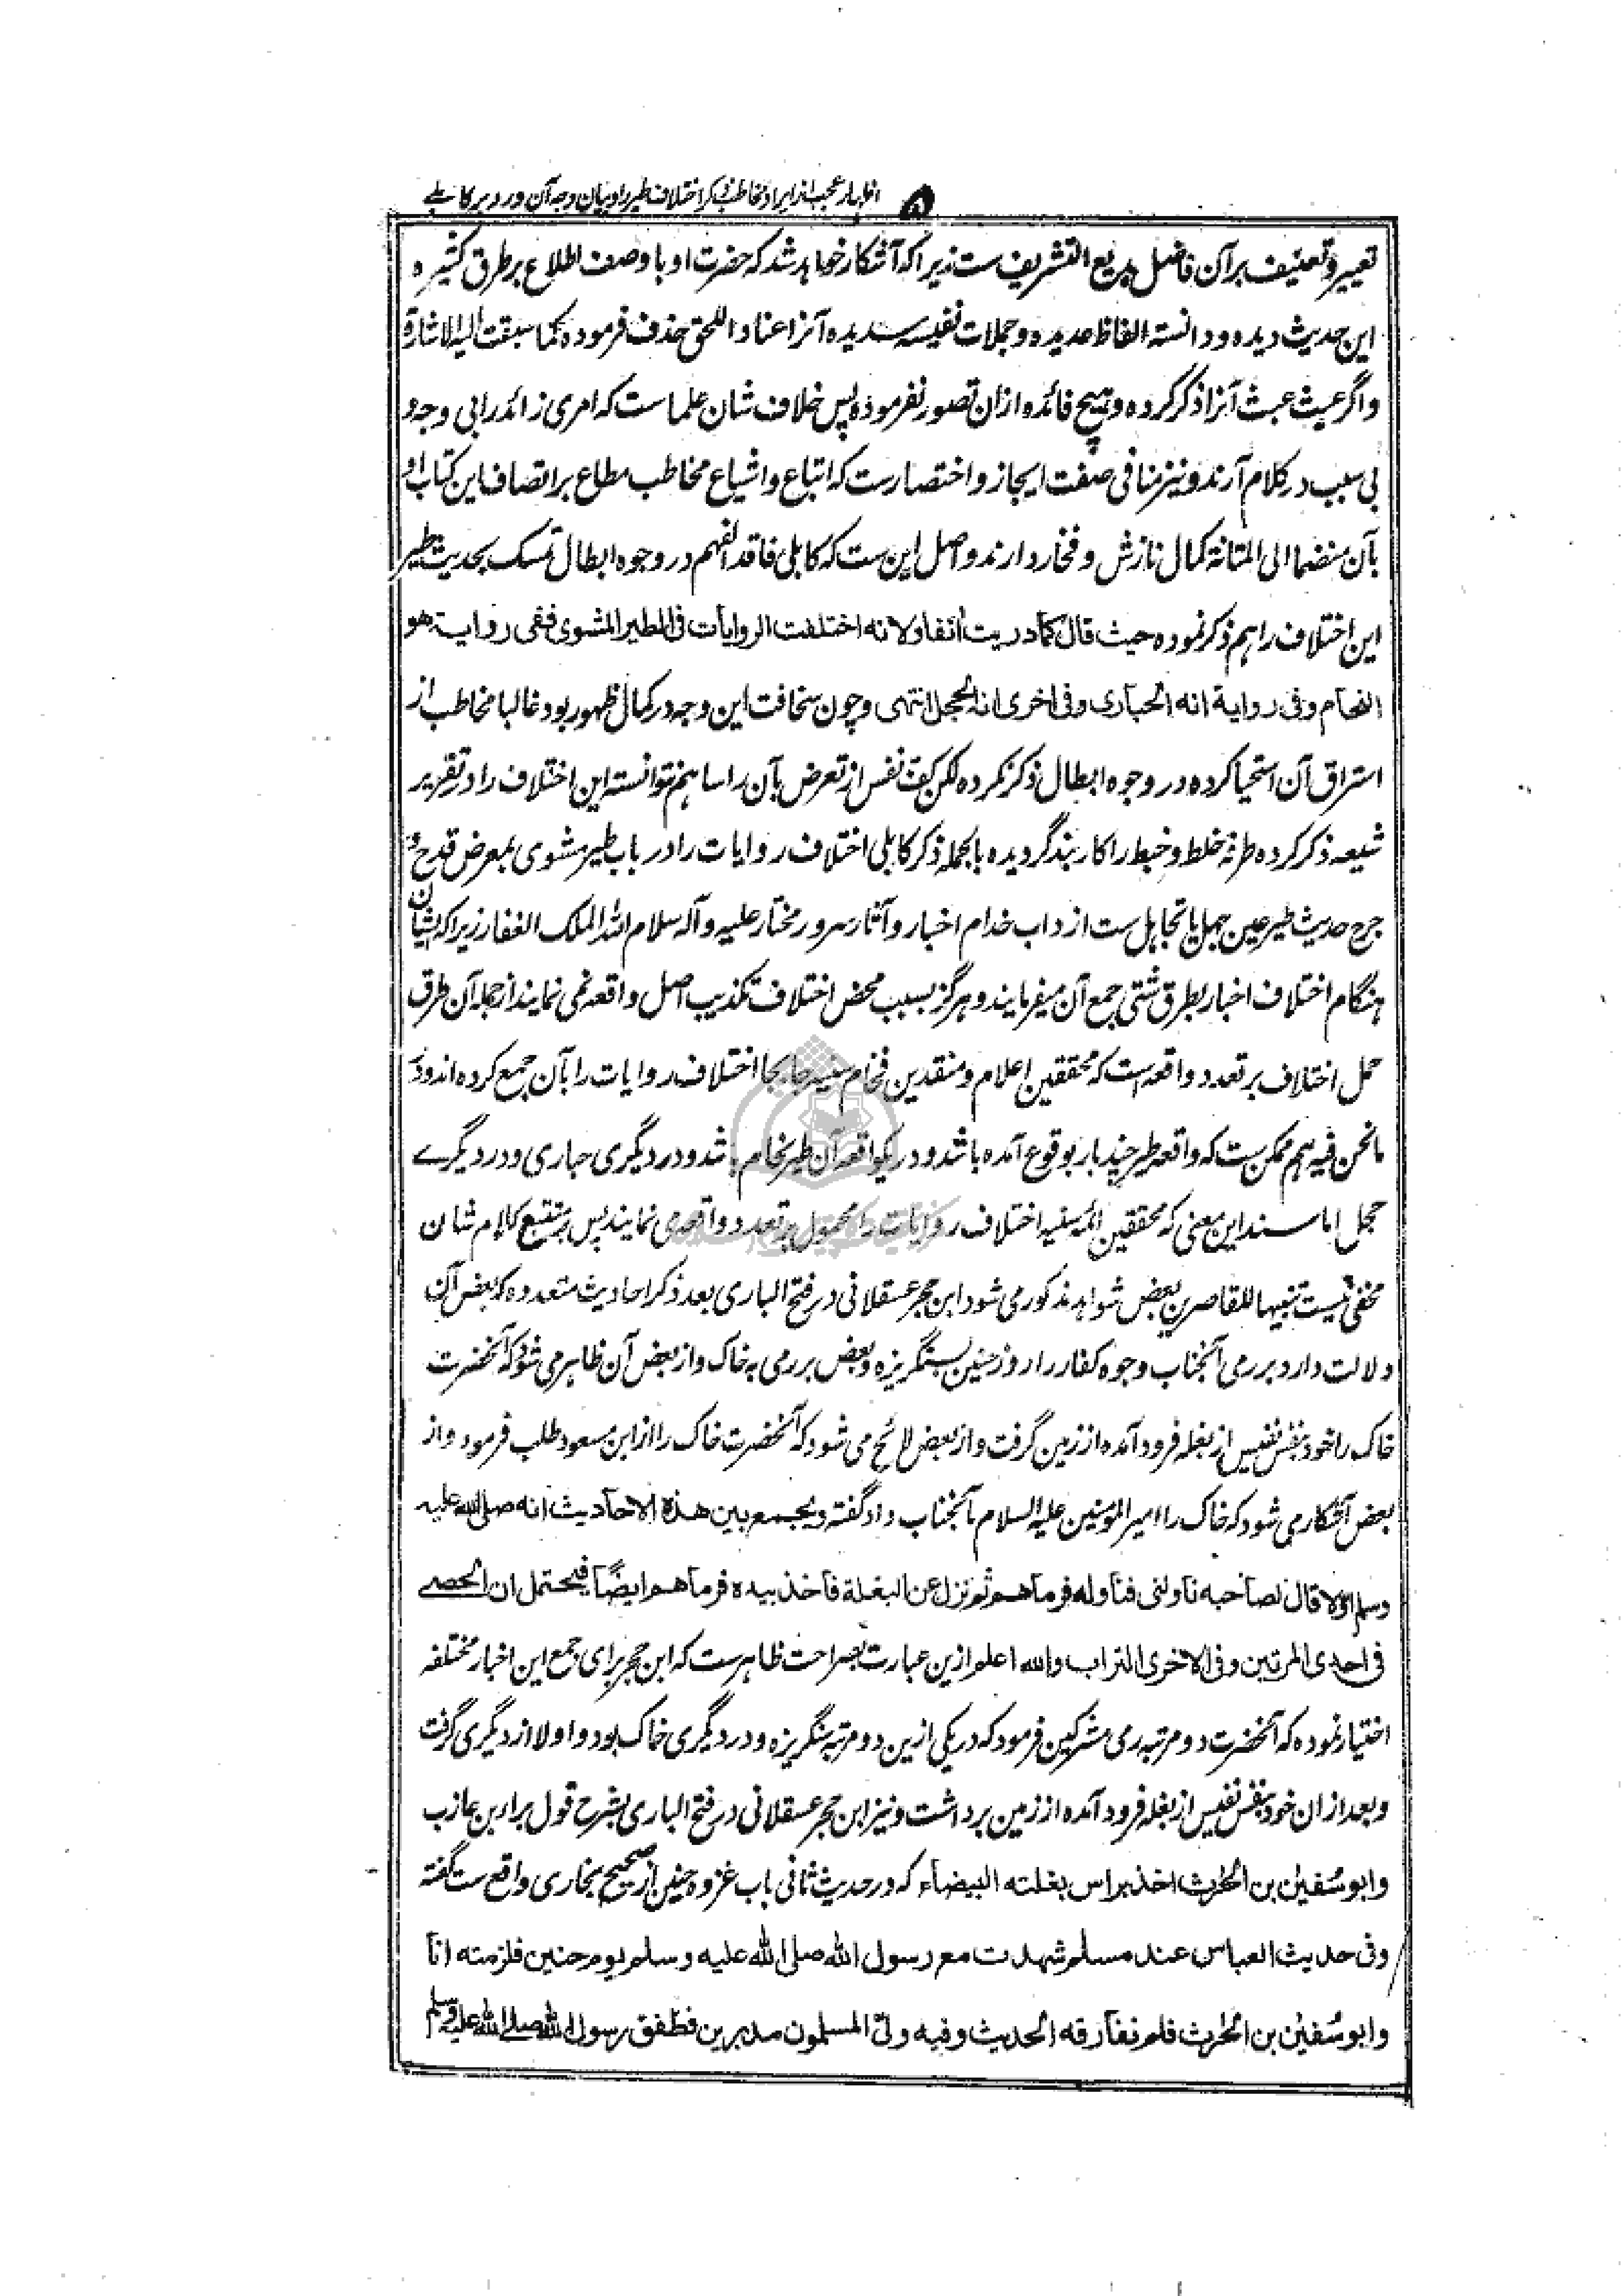 اظهار عجب از ایراد مخاطب ذکر اختلاف طیر را و بیان وجه آن و رد بر کابلے
۵
تعییر و تعنیف بر آن فاضل بدیع التشریف ست زیرا که آشکار خواهد شد که حضرت او با وصف اطلاع بر طرق کثیره
این حدیث دیده و دانسته الفاظ عدیده و جملات نفیسه سدیده آنرا عنادا للحق حذف فرموده کما سبقت الیه الاشارة
و اگر عیث عبث آنرا ذکر کرده و هیچ فائده ازان تصور نفرموده پس خلاف شان علماست که امری زائد را بی وجه و
بی سبب در کلام آرند و نیز منافی صفت ایجاز و اختصارست که اتباع و اشیاع مخاطب مطاع بر اتصاف این کتاب او
بآن منضما الی المتانة کمال نازش و فخار دارند و اصل این ست که کابلی فاقد الفهم در وجوه ابطال تمسک بحدیث طیر
این اختلاف را هم ذکر نموده حیث قال کما دریت آنفا ولانه اختلفت الروایات فی الطیر المشوی ففی روایة هو
النحام وفی روایة انه الحباری وفی اخری انه الحجل انتهی و چون سخافت این وجه در کمال ظهور بود غالبا مخاطب از
استراق آن استحیا کرده در وجوه ابطال ذکر نکرده لکن کف نفس از تعرض بآن راسا هم نتوانسته این اختلاف را در تقریر
شیعه ذکر کرده طرفه خلط و خبط را کاربند گردیده بالجمله ذکر کابلی اختلاف روایات را در باب طیر مشوی بمعرض قدح و
جرح حدیث طیر عین جهل یا تجاهل ست از داب خدام اخبار و آثار سرور مختار علیه و آله سلام الله الملک الغفار زیرا که ایشان
هنگام اختلاف اخبار بطرق شتی جمع آن میفرمایند و هرگز بسبب محض اختلاف تکذیب اصل واقعه نمی نمایند از جمله آن طرق
حمل اختلاف بر تعدد واقعه است که محققین اعلام و منقدین فخام سنیه جابجا اختلاف روایات را بآن جمع کرده اند و در
ما نحن فیه هم ممکن ست که واقعه طیر چند بار بوقوع آمده باشد و در یکواقعه آن طیر نحام باشد و در دیگری حباری و در دیگرے
حجل اما سند این معنی که محققین ائمه سنیه اختلاف روایات را محمول بر تعدد واقعه می نمایند پس بر متتبع کلام شان
مخفی نیست تنبیها للقاصرین بعض شواهد مذکور می شود ابن حجر عسقلانی در فتح الباری بعد ذکر احادیث متعدده که بعض آن
دلالت دارد بر رمی آنجناب وجوه کفار را روز حنین بسنگریزه و بعض بر رمی به خاک و از بعض آن ظاهر می شود که آنحضرت
خاک را خود بنفس نفیس از بغله فرود آمده از زمین گرفت و از بعض لائح می شود که آنحضرت خاک را از ابن مسعود طلب فرمود و از
بعض آشکار می شود که خاک را امیر المومنین علیه السلام بآنجناب داد گفته ویجمع بین هذه الاحادیث انه صلی الله علیه
وسلم اولا قال لصاحبه ناولنی فناوله فرماهم ثم نزل عن البغلة فاخذ بیده فرماهم ایضاً فیحتمل ان الحصے
فی احدی المرتین وفی الاخری التراب والله اعلم ازین عبارت بصراحت ظاهرست که ابن حجر برای جمع این اخبار مختلفه
اختیار نموده که آنحضرت دو مرتبه رمی مشرکین فرمود که در یکی ازین دو مرتبه سنگریزه و در دیگری خاک بود و اولا از دیگری گرفت
و بعد ازان خود بنفس نفیس از بغله فرود آمده از زمین برداشت و نیز ابن حجر عسقلانی در فتح الباری بشرح قول براء بن عازب
وابو سفین بن الحرث اخذ براس بغلته البیضاء که در حدیث ثانی باب غزوه حنین از صحیح بخاری واقع ست گفته
وفی حدیث العباس عند مسلم شهدت مع رسول الله صلی الله علیه وسلم یوم حنین فلزمته انا
وابو سفین بن الحرث فلم نفارقه الحدیث وفیه ولی المسلمون مدبرین فطفق رسول الله صلے الله علیه وسلم